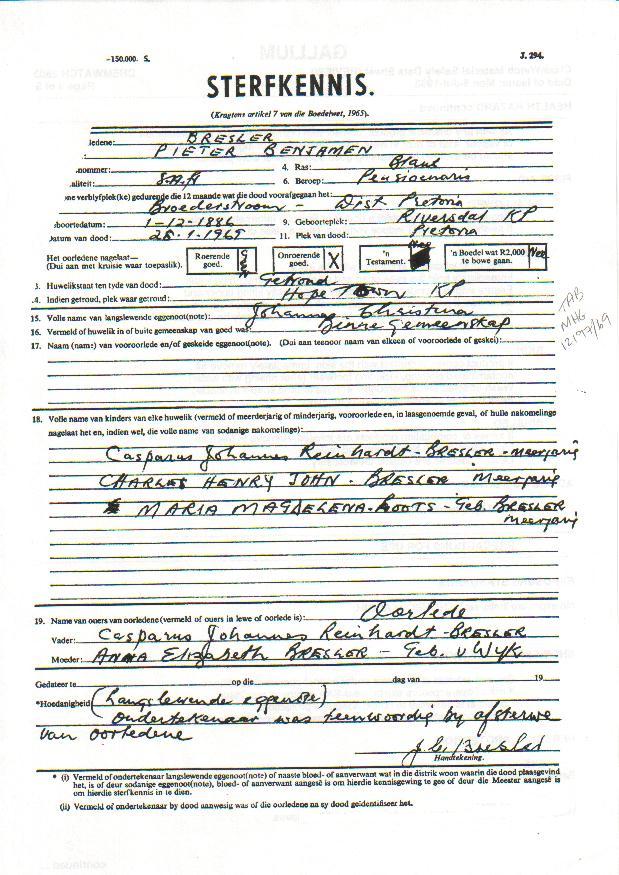 -150.000. S.
J. 294.
STERFKENNIS.
(Kragtens artikel 7 van die Boedelwet, 1965).
ledene: BRESLER
: PIETER BENJAMEN
nommer: 4. Ras: Blank
aliteit: S.A.R 6. Beroep: Pensioenaris
one verblyfplek(ke) gedurende die 12 maande wat die dood voorafgegaan het:
Broederstroom - Dist Pretoria
boortedatum: 1-12-1886 9. Geboorteplek: Riversdal KP
Datum van dood: 28-1-1969 11. Plek van dood: Pretoria
Het oorledene nagelaat—
(Dui aan met kruisie waar toepaslik).
Roerende goed.
Onroerende goed. X
'n Testament. Nee
'n Boedel wat R2,000 te bowe gaan. Nee
3. Huwelikstaat ten tyde van dood: Getroud
.4. Indien getroud, plek waar getroud: Hope Town KP
15. Volle name van langslewende eggenoot(note): Johanna Christina
16. Vermeld of huwelik in of buite gemeenskap van goed was: Binne Gemeenskap
17. Naam (name:) van vooroorlede en/of geskeide eggenoot(note). (Dui aan teenoor naam van elkeen of vooroorlede of geskei):
TAB
MHG
12197/69
18. Volle name van kinders van elke huwelik (vermeld of meerderjarig of minderjarig, vooroorlede en, in laasgenoemde geval, of hulle nakomelinge
nagelaat het en, indien wel, die volle name van sodanige nakomelinge):
Casparus Johannes Reinhardt - BRESLER - meerjarig
CHARLES HENRY JOHN - BRESLER meerjarig
MARIA MAGDELENA - ROOTS - Geb. BRESLER
meerjarig
19. Name van ouers van oorledene (vermeld of ouers in lewe of oorlede is): Oorlede
Vader: Casparus Johannes Reinhardt - BRESLER
Moeder: ANNA Elizabeth BRESLER - Geb. v Wyk
Gedateer te op die dag van 19
*Hoedanigheid (Langslewende eggenote)
Ondertekenaar was teenwoordig by afsterwe
van oorledene
J.C. Bresler
Handtekening.
* (i) Vermeld of ondertekenaar langslewende eggenoot(note) of naaste bloed- of aanverwant wat in die distrik woon waarin die dood plaasgevind
het, is of deur sodanige eggenoot(note), bloed- of aanverwant aangesê is om hierdie kennisgewing te gee of deur die Meester aangesê is
om hierdie sterfkennis in te dien.
(ii) Vermeld of ondertekenaar by dood aanwesig was of die oorledene na sy dood geïdentifiseer het.